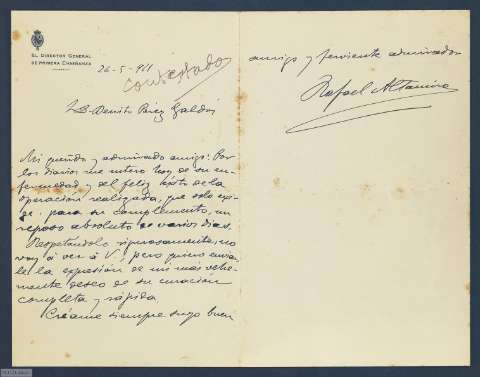 EL DIRECTOR GENERAL
DE PRIMERA ENSEÑANZA
26-5-911
contestado
Benito Pérez Galdós
Mi querido y admirado amigo: Por
los diarios me entero hoy de su en-
fermedad y del feliz éxito de la
operación realizada, que solo exi-
ge, para su complemento, un
reposo absoluto de varios días.
Respetándolo rigurosamente, no
voy á ver á V., pero quiero enviar-
le la expresión de mi más vehe-
mente deseo de su curación
completa y rápida.
Créame siempre suyo buen
amigo y ferviente admirador
Rafael Altamira